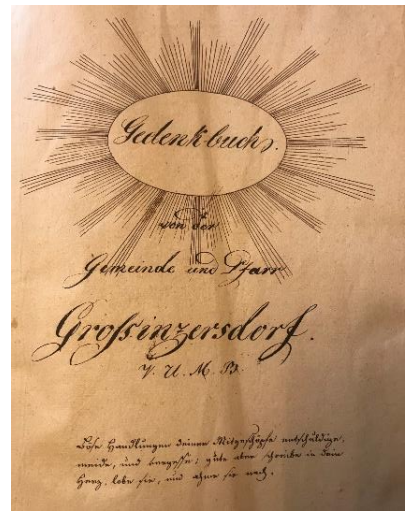 Gedenkbuch.
von der
Gemeinde und Pfarr
Grossinzersdorf.
V. U. M. B.
Böse Handlungen deiner Mitgeschöpfe entschuldige,
meide, und vergesse; gute aber schreibe in dein
Herz, lobe sie, und ahme sie nach.